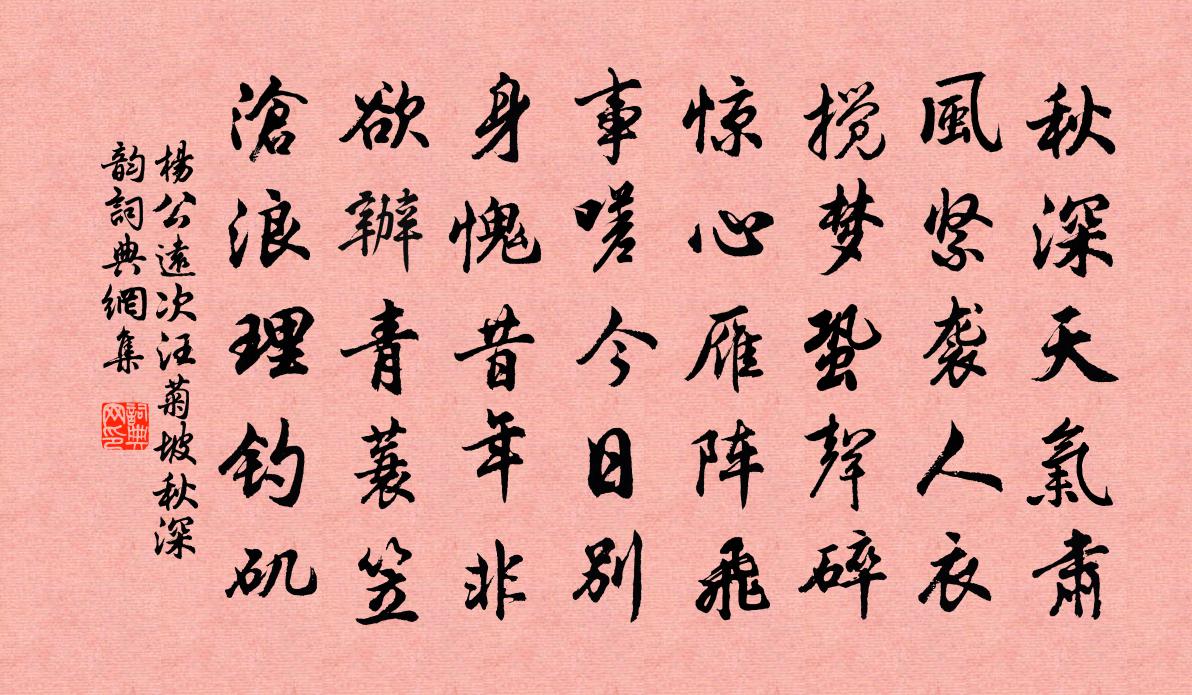 秋深天氣肅
風紧袭人衣
搅梦蛩聲碎
惊心雁阵飛
事嗟今日别
身愧昔年非
欲辦青蓑笠
滄浪理钓矶
楊公遠次汪菊坡秋深
韵詞典網集
詞典
网印